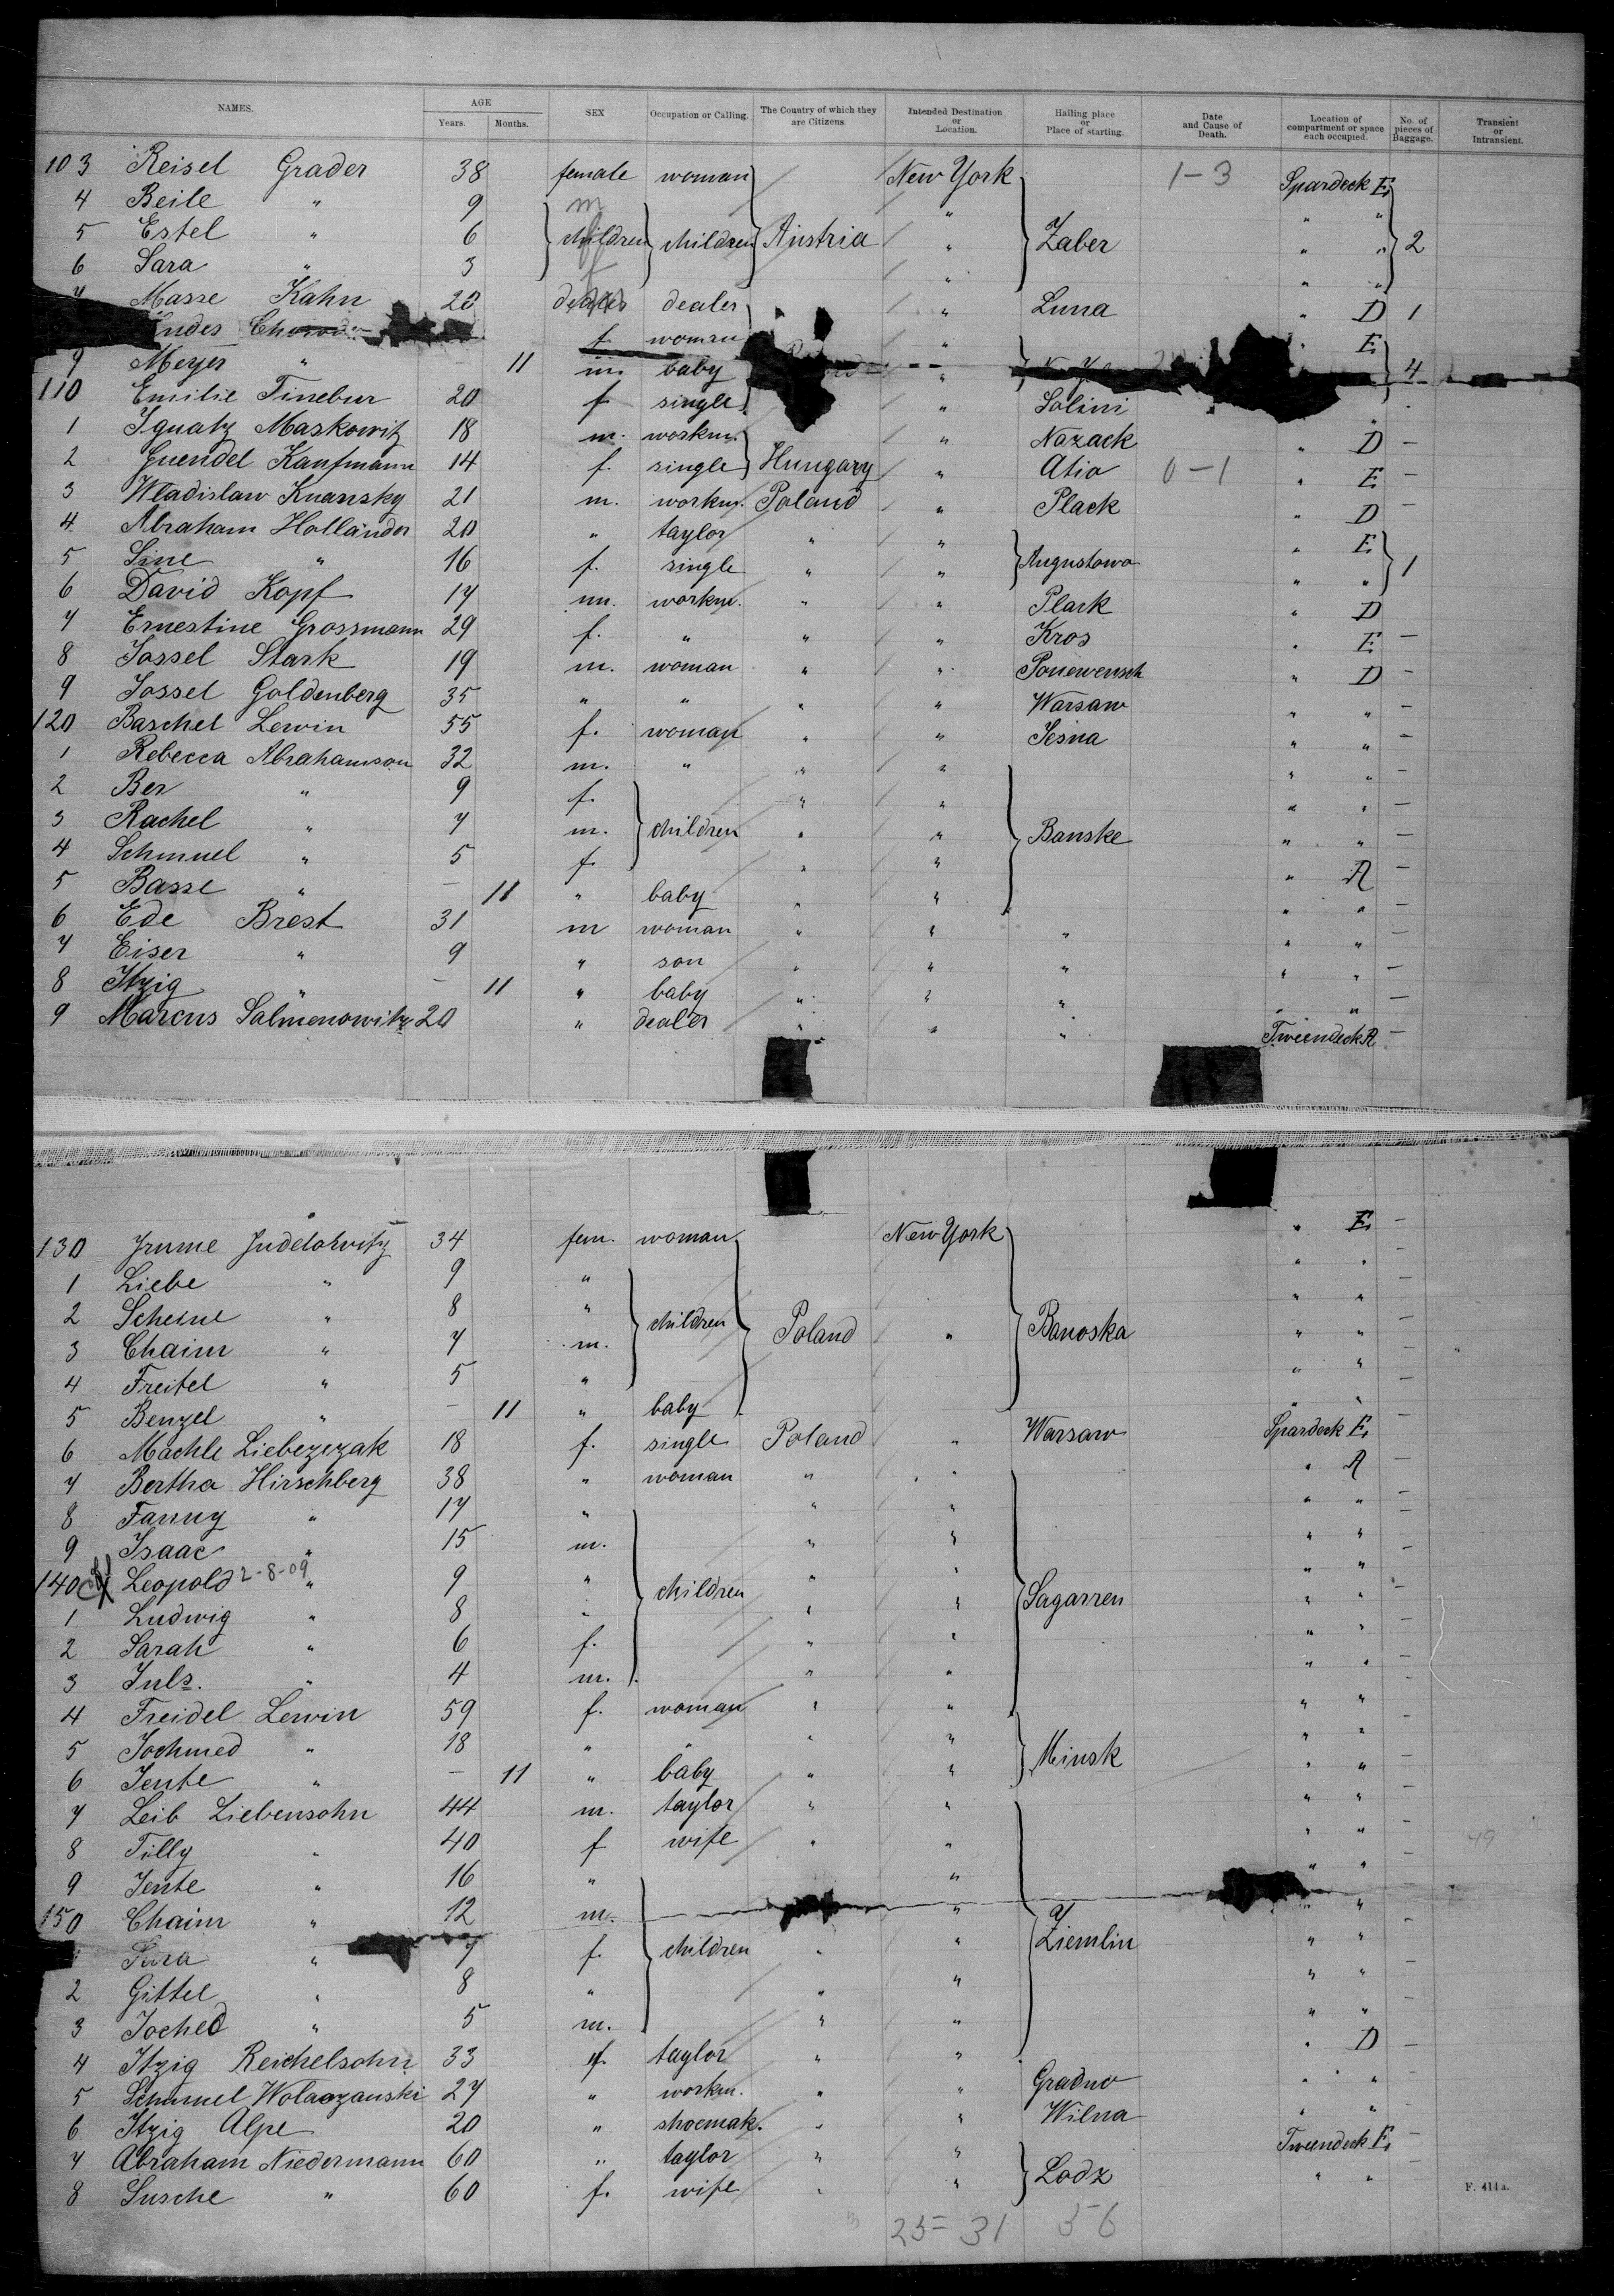 NAMES. AGE Years. Months. SEX Occupation or Calling. The Country of which they are Citizens. Intended Destination or Location. Hailing place or Place of starting. Date and Cause of Death. Location of compartment or space each occupied. No. of pieces of Baggage. Transient or Intransient.
103 Reisel Grader 38 female woman New York 1-3 Spardeck E
4 Beile " 9 m "  " "
5 Estel " 6 children children Austria " Zaber " " 2
6 Sara " 3 f " " "
7 Masse Kahn 20 dealer dealer " Luna " D 1
f. woman " " E
9 Meyer " – 11 m. baby " 4
110 Emilie Tinebur 20 f. single " Solini "
1 Ignatz Maskowitz 18 m. workm. " Nazack " D –
2 Guendel Kaufmann 14 f. single Hungary " Atio 0-1 " E –
3 Wladislaw Knansky 21 m. workm. Poland " Plack " D –
4 Abraham Holländer 20 " taylor " " " E
5 Sine " 16 f. single " " Augustowo " " 1
6 David Kopf 17 m. workm. " " Plark " D
7 Ernestine Grossmann 29 f. " " " Kros " E –
8 Jossel Stark 19 m. woman " " Ponewensch " D –
9 Jossel Goldenberg 35 " " " " Warsaw " " –
120 Baschel Lewin 55 f. woman " " Jesna " " –
1 Rebecca Abrahamson 32 m. " " " " " –
2 Ber " 9 f. " " " " –
3 Rachel " 7 m. children " " Banske " " –
4 Schmuel " 5 f. " " " A –
5 Basse " – 11 " baby " " " " –
6 Ede Brest 31 m woman " " " " " –
7 Eiser " 9 " son " " " " " –
8 Itzig " – 11 " baby " " " " " –
9 Marcus Salmenowitz 20 " dealer " " " Tweendeck A –
130 Jrume Judelowitz 34 fem. woman New York " E –
1 Liebe " 9 " " " –
2 Scheine " 8 " children " " –
3 Chaim " 7 m. Poland " Banoska " " –
4 Freitel " 5 " " " –
5 Benzel " – 11 " baby " " –
6 Machle Liebezezak 18 f. single Poland " Warsaw Spardeck E –
7 Bertha Hirschberg 38 " woman " " " A –
8 Fanny " 17 " " " " " –
9 Isaac " 15 m. " " " " –
140 Leopold 2-8-09 " 9 " children " " " " –
1 Ludwig " 8 " " " Sagarren " " –
2 Sarah " 6 f. " " " " –
3 Juls. " 4 m. " " " " –
4 Freidel Lewin 59 f. woman " " " " –
5 Jochmed " 18 " " " " Minsk " " –
6 Jente " – 11 " baby " " " " –
7 Leib Liebensohn 44 m. taylor " " " " –
8 Tilly " 40 f wife " " " " – 49
9 Jente " 16 " " " "
150 Chaim " 12 m. " " " –
Sara " 7 f. children " " Ziemlin " " –
2 Gittel " 8 " " " " " –
3 Joched " 5 m. " " " " –
4 Itzig Reichelsohn 33 taylor " " " D –
5 Schmuel Wolaozanski 27 " workm. " " Gradno " " –
6 Itzig Alpe 20 " shoemak. " " Wilna " " –
7 Abraham Niedermann 60 " taylor " " Lodz Tweendeck E –
8 Susche " 60 f. wife " " " " –
25= 31 56
F. 414a.